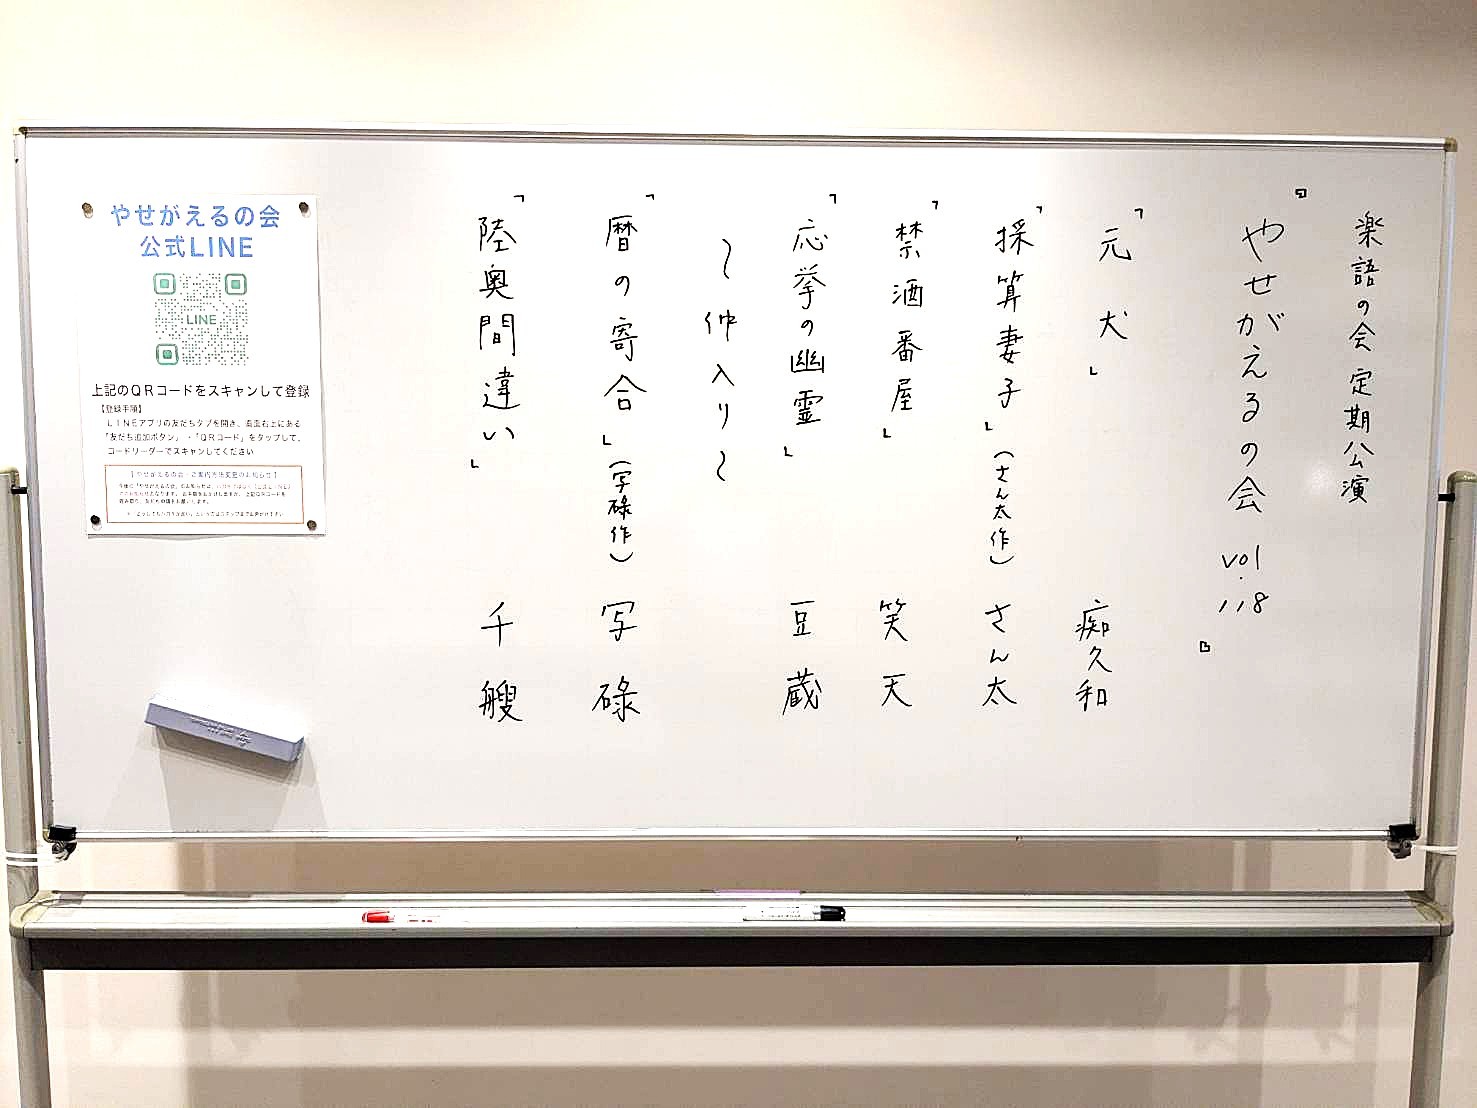 楽語の会 定期公演
『やせがえるの会 vol.118』
「元犬」 痴久和
「採算妻子」(さん太作) さん太
「禁酒番屋」 笑天
「応挙の幽霊」 豆蔵
〜仲入り〜
「暦の寄合」(写碌作) 写碌
「陸奥間違い」 千艘
やせがえるの会
公式LINE
LINE
上記のQRコードをスキャンして登録
【登録手順】
LINEアプリの友だちタブを開き、画面右上にある
「友だち追加ボタン」・「QRコード」をタップして、
コードリーダーでスキャンしてください